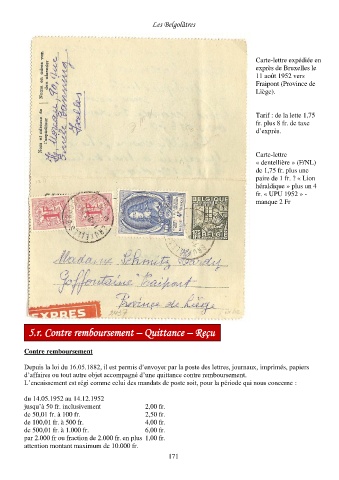 Les Belgolâtres
Carte-lettre expédiée en
exprès de Bruxelles le
11 août 1952 vers
Fraipont (Province de
Liège).
Tarif : de la lette 1,75
fr. plus 8 fr. de taxe
d'exprès.
Carte-lettre
« dentellière » (F/NL)
de 1,75 fr. plus une
paire de 1 fr. ? « Lion
héraldique » plus un 4
fr. « UPU 1952 » -
manque 2 Fr
Nom et adresse de
l'expéditeur
Ixelles
Madame Schmitz
Fraipont
Province de Liège
EXPRES
5.r. Contre remboursement – Quittance – Reçu
Contre remboursement
Depuis la loi du 16.05.1882, il est permis d'envoyer par la poste des lettres, journaux, imprimés, papiers
d'affaires ou tout autre objet accompagné d'une quittance contre remboursement.
L'encaissement est régi comme celui des mandats de poste soit, pour la période qui nous concerne :
du 14.05.1952 au 14.12.1952
jusqu'à 50 fr. inclusivement 2,00 fr.
de 50,01 fr. à 100 fr. 2,50 fr.
de 100,01 fr. à 500 fr. 4,00 fr.
de 500,01 fr. à 1.000 fr. 6,00 fr.
par 2.000 fr ou fraction de 2.000 fr. en plus 1,00 fr.
attention montant maximum de 10.000 fr.
171